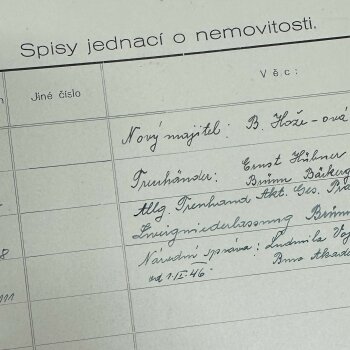 Spisy jednací o nemovitosti.
Jiné číslo
Věc:
Nový majitel: B. Hože-ová
Treuhänder: Ernst Hübner
Brünn Bäckerg
Allg. Treuhand Akt. Ges. Pra
Zweigniederlassung Brünn
8
Národní správa: Ludmila Voj
od 1.II.46. Brno Akade